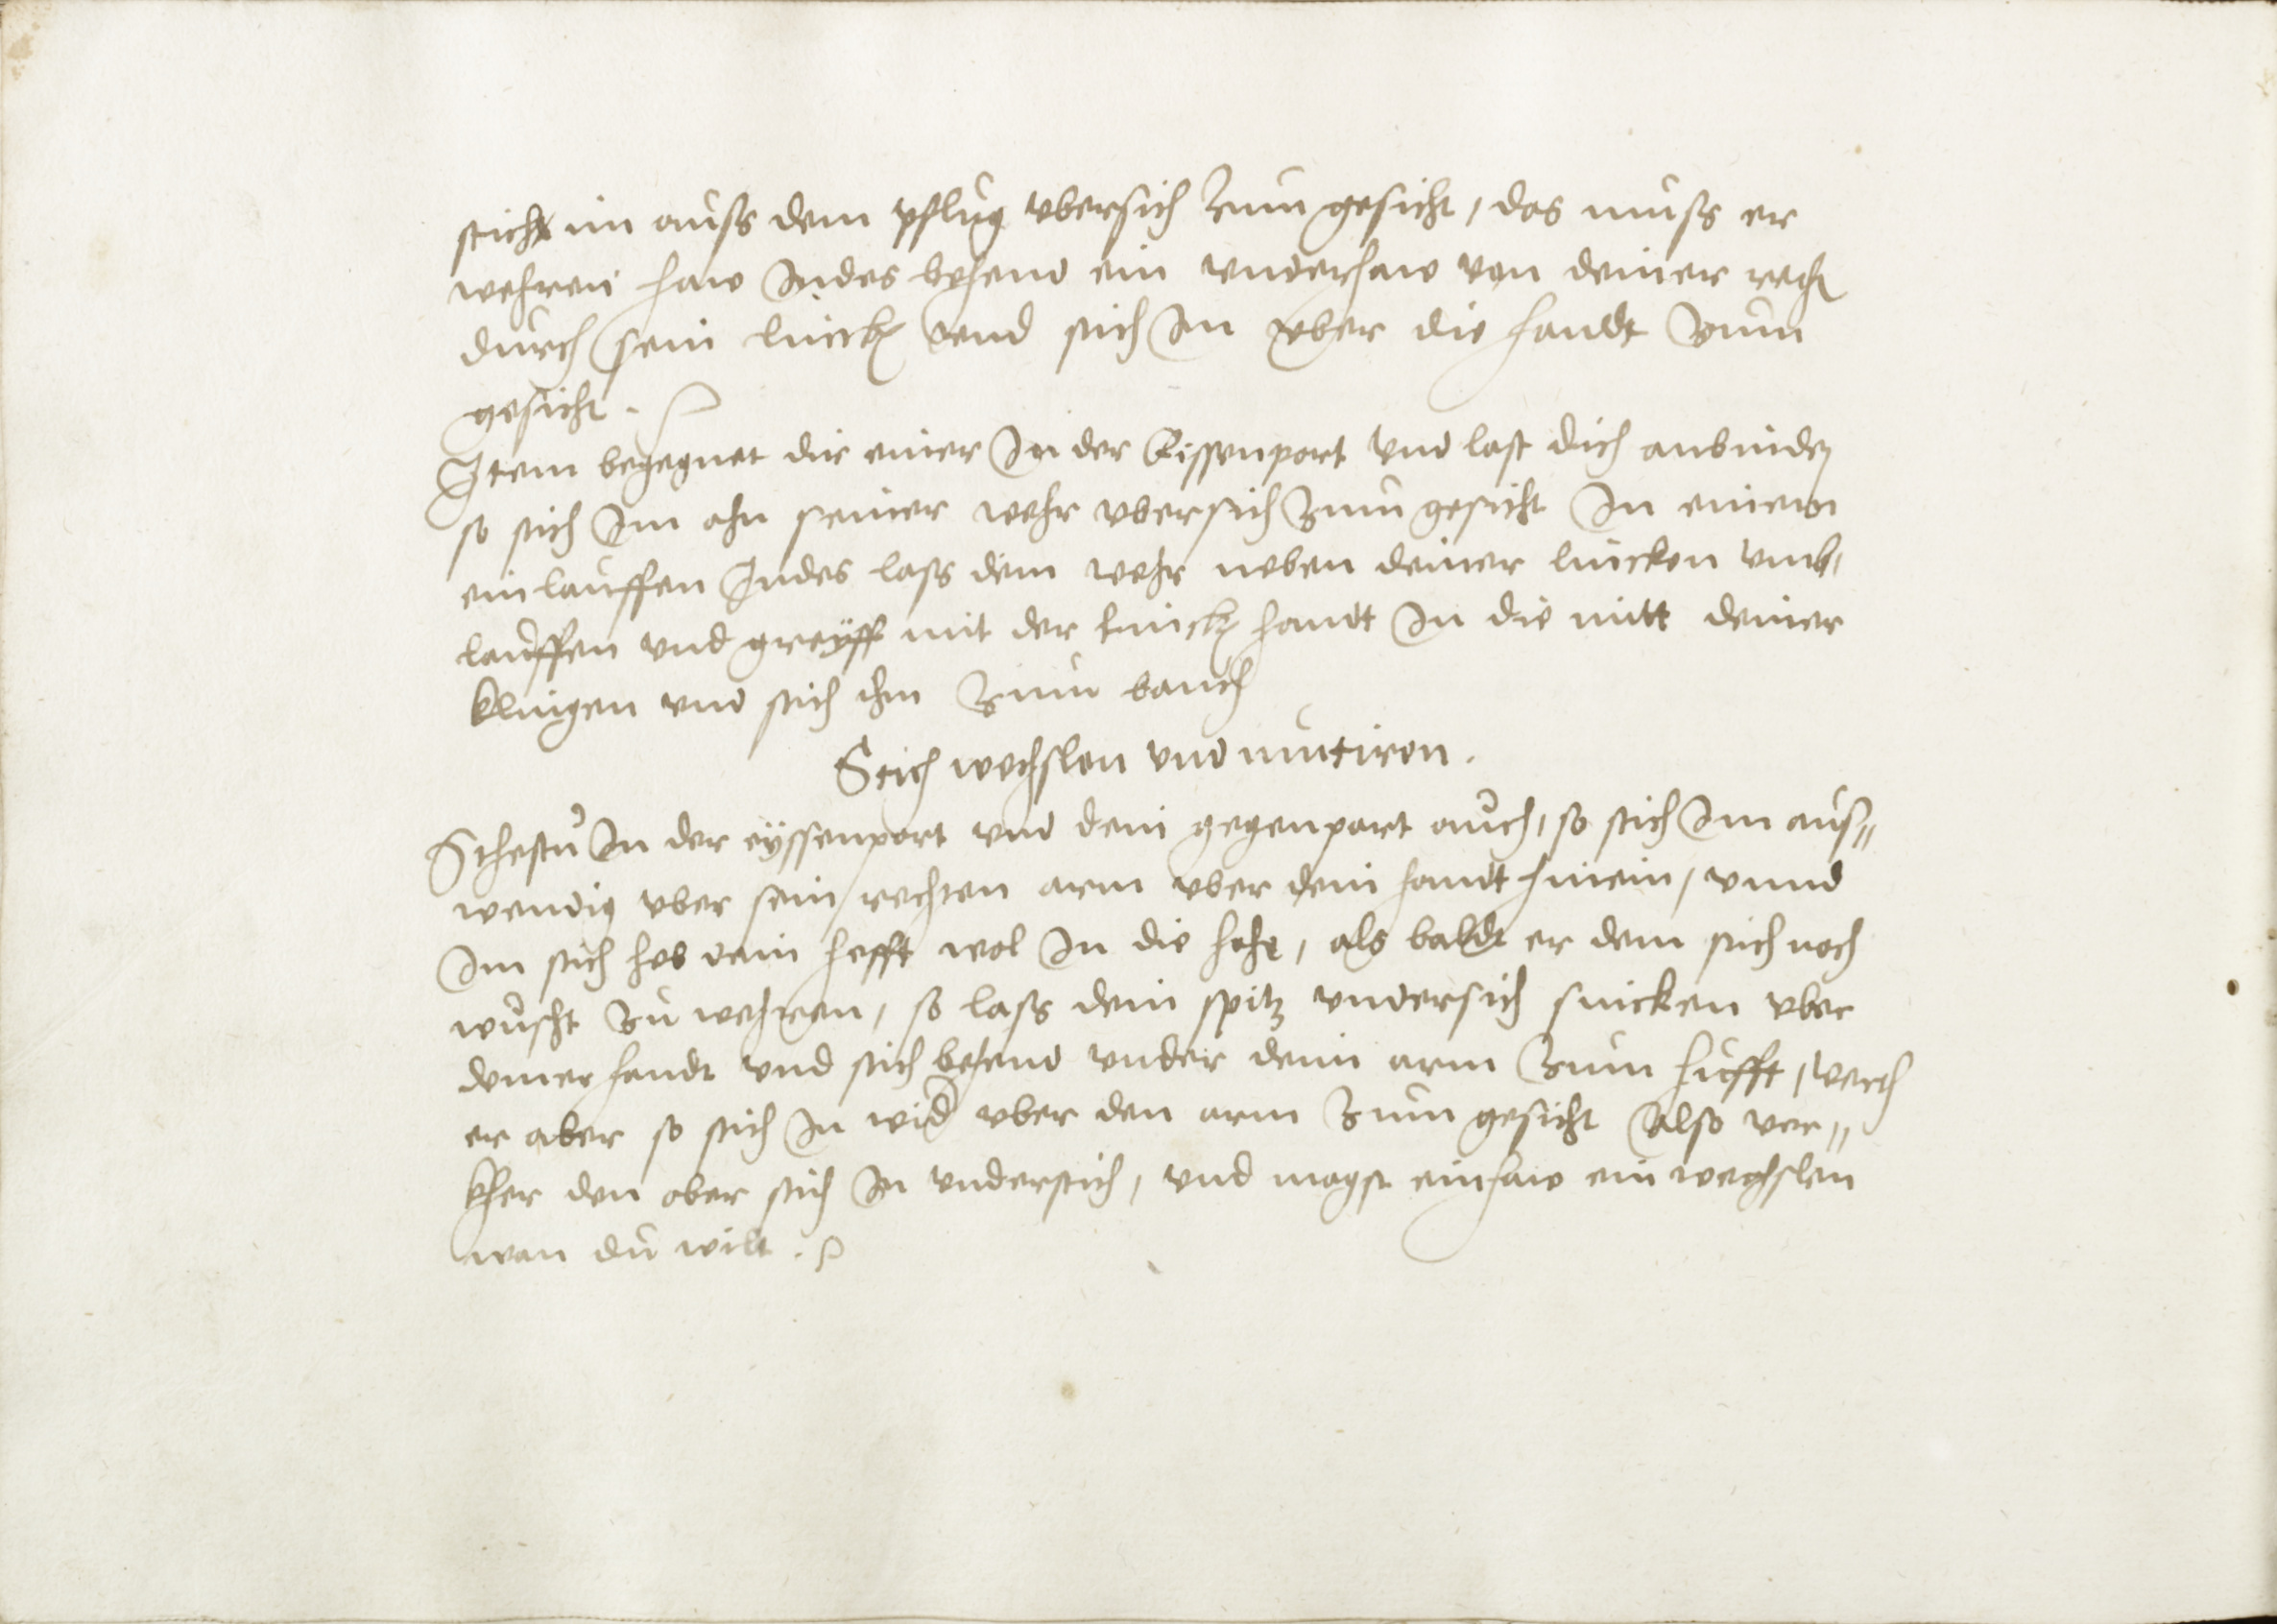 stich im auss dem pflug vbersich zum gesicht, das muss er
wehren haw Indes behend ein vnderhaw von deiner rech
durch sein linck vnd stich Im vber die handt zum
gesicht.
Item begegnet dir einer In der Eissenport vnd last dich anbinden
so stich Im ahn seiner wehr vbersich zum gesicht In einem
einlauffen Indes lass dein wehr neben deiner lincken vmb,
lauffen vnd greyff mit der linck handt In die mitt deiner
klingen vnd stich ihm zum bauch
Stich wechslen vnd mutiren.
Sthestu In der eyssenport vnd dein gegenpart auch, so stich Im aus„
wendig vber sein rechten arm vber dein handt hinein, vnnd
Im stich heb dein hefft wol In die hohe, als baldt er dem stich noch
wuscht zu wehren, so lass dein spitz vndersich sincken vber
deiner handt vnd stich behend vnder deim arm zum hufft, verth
er aber so stich In wid vber den arm zum gesicht Also ver„
kher den ober stich In vnderstich, vnd magst ein haw ein wechslen
wan du wilt.